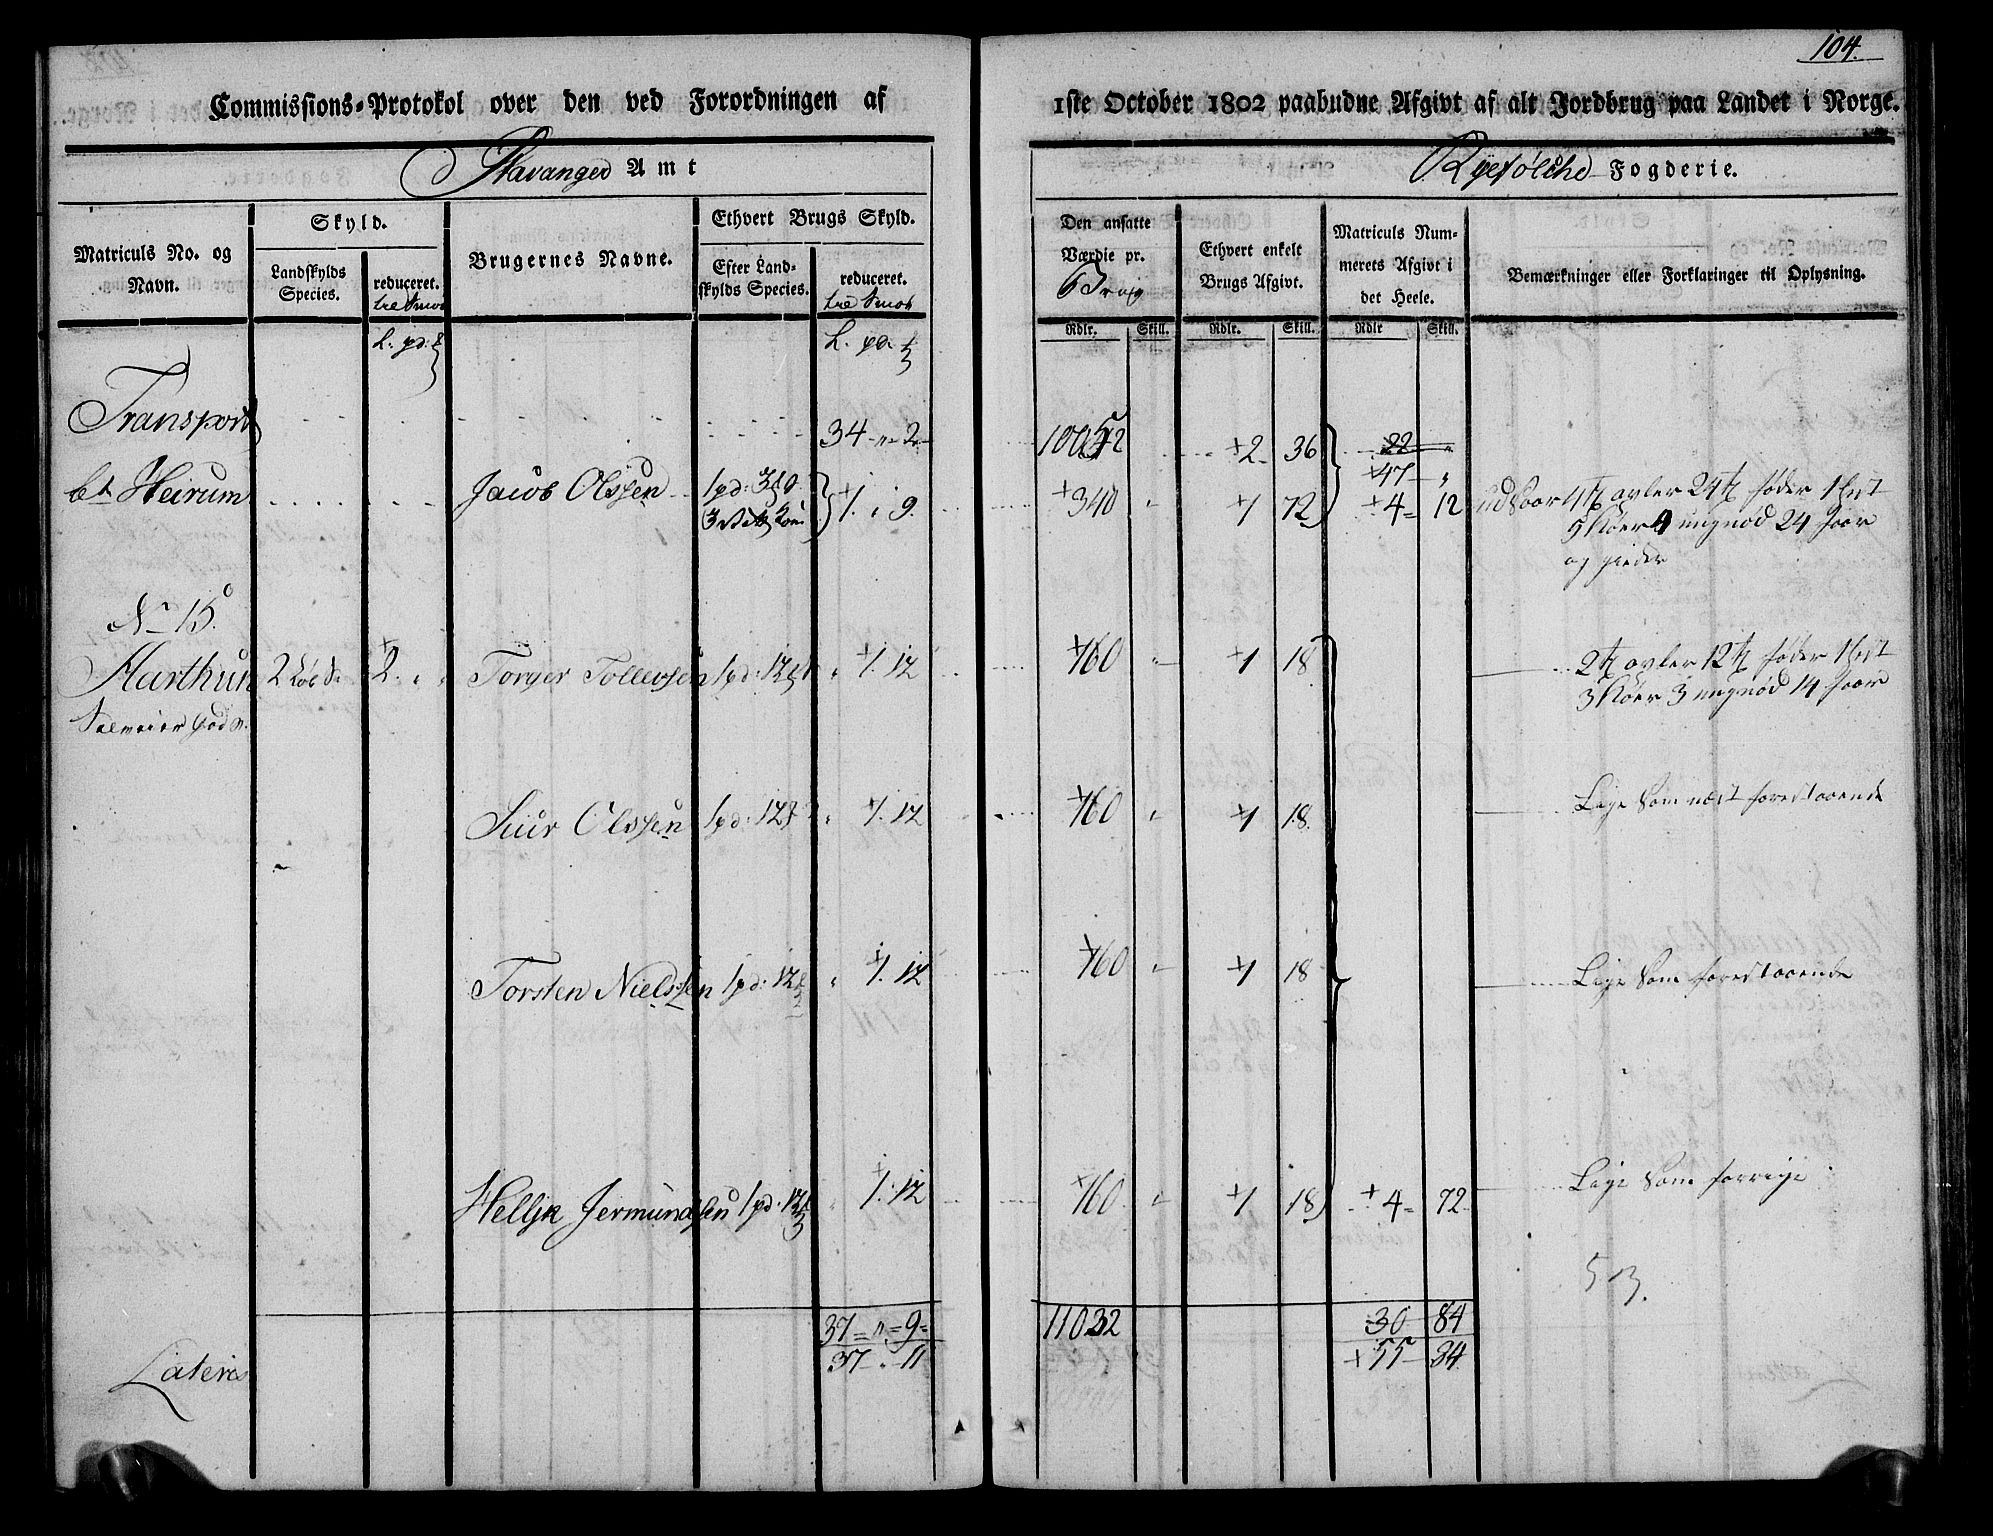 104.
Commissions-Protokol over den ved Forordningen af 1ste October 1802 paabudne Afgivt af alt Jordbrug paa Landet i Norge.
Stavanger Amt
Ryefølche Fogderie.
Matriculs No. og Navn.
Skyld.
Landskylds Species.
reduceret.
Brugernes Navne.
Ethvert Brugs Skyld.
Efter Landskylds Species.
reduceret.
Den ansatte Værdie pr. Brug
Ethvert enkelt Brugs Afgivt.
Matriculs Nummerets Afgivt i det Heele.
Bemærkninger eller Forklaringer til Oplysning.
Rdlr. Skill. Rdlr. Skill. Rdlr Skill.
Transport 34 " 2 10052 2 36 22
47 "
Heirum Jacob Olssen 1 9 340 " 1 72 4 12 24 føder 1 hest
5 Kiøer 4 ungnød 24 faar
og gieder
No 15
Harthun 2 2 " " Torger Tollevsen 1 pd: 12 " 1. 12 160 " 1 18 2 avler 12 føder 1 hest
3 Kiøer 3 ungnød 14 faar
Siur Olssen 1 pd: 12 " 1. 12 160 " 1 18 Lige som næst forestaaende
Torsten Nielssen 1 pd: 12 " 1. 12 160 " 1 18 Lige som forestaaende
Hellje Jermundsen 1 pd: 12 " 1. 12 160 " 1 18 4 72 Lige som forrige
37 " 9 11032 30 84
Lateris 37 " 11 55 84